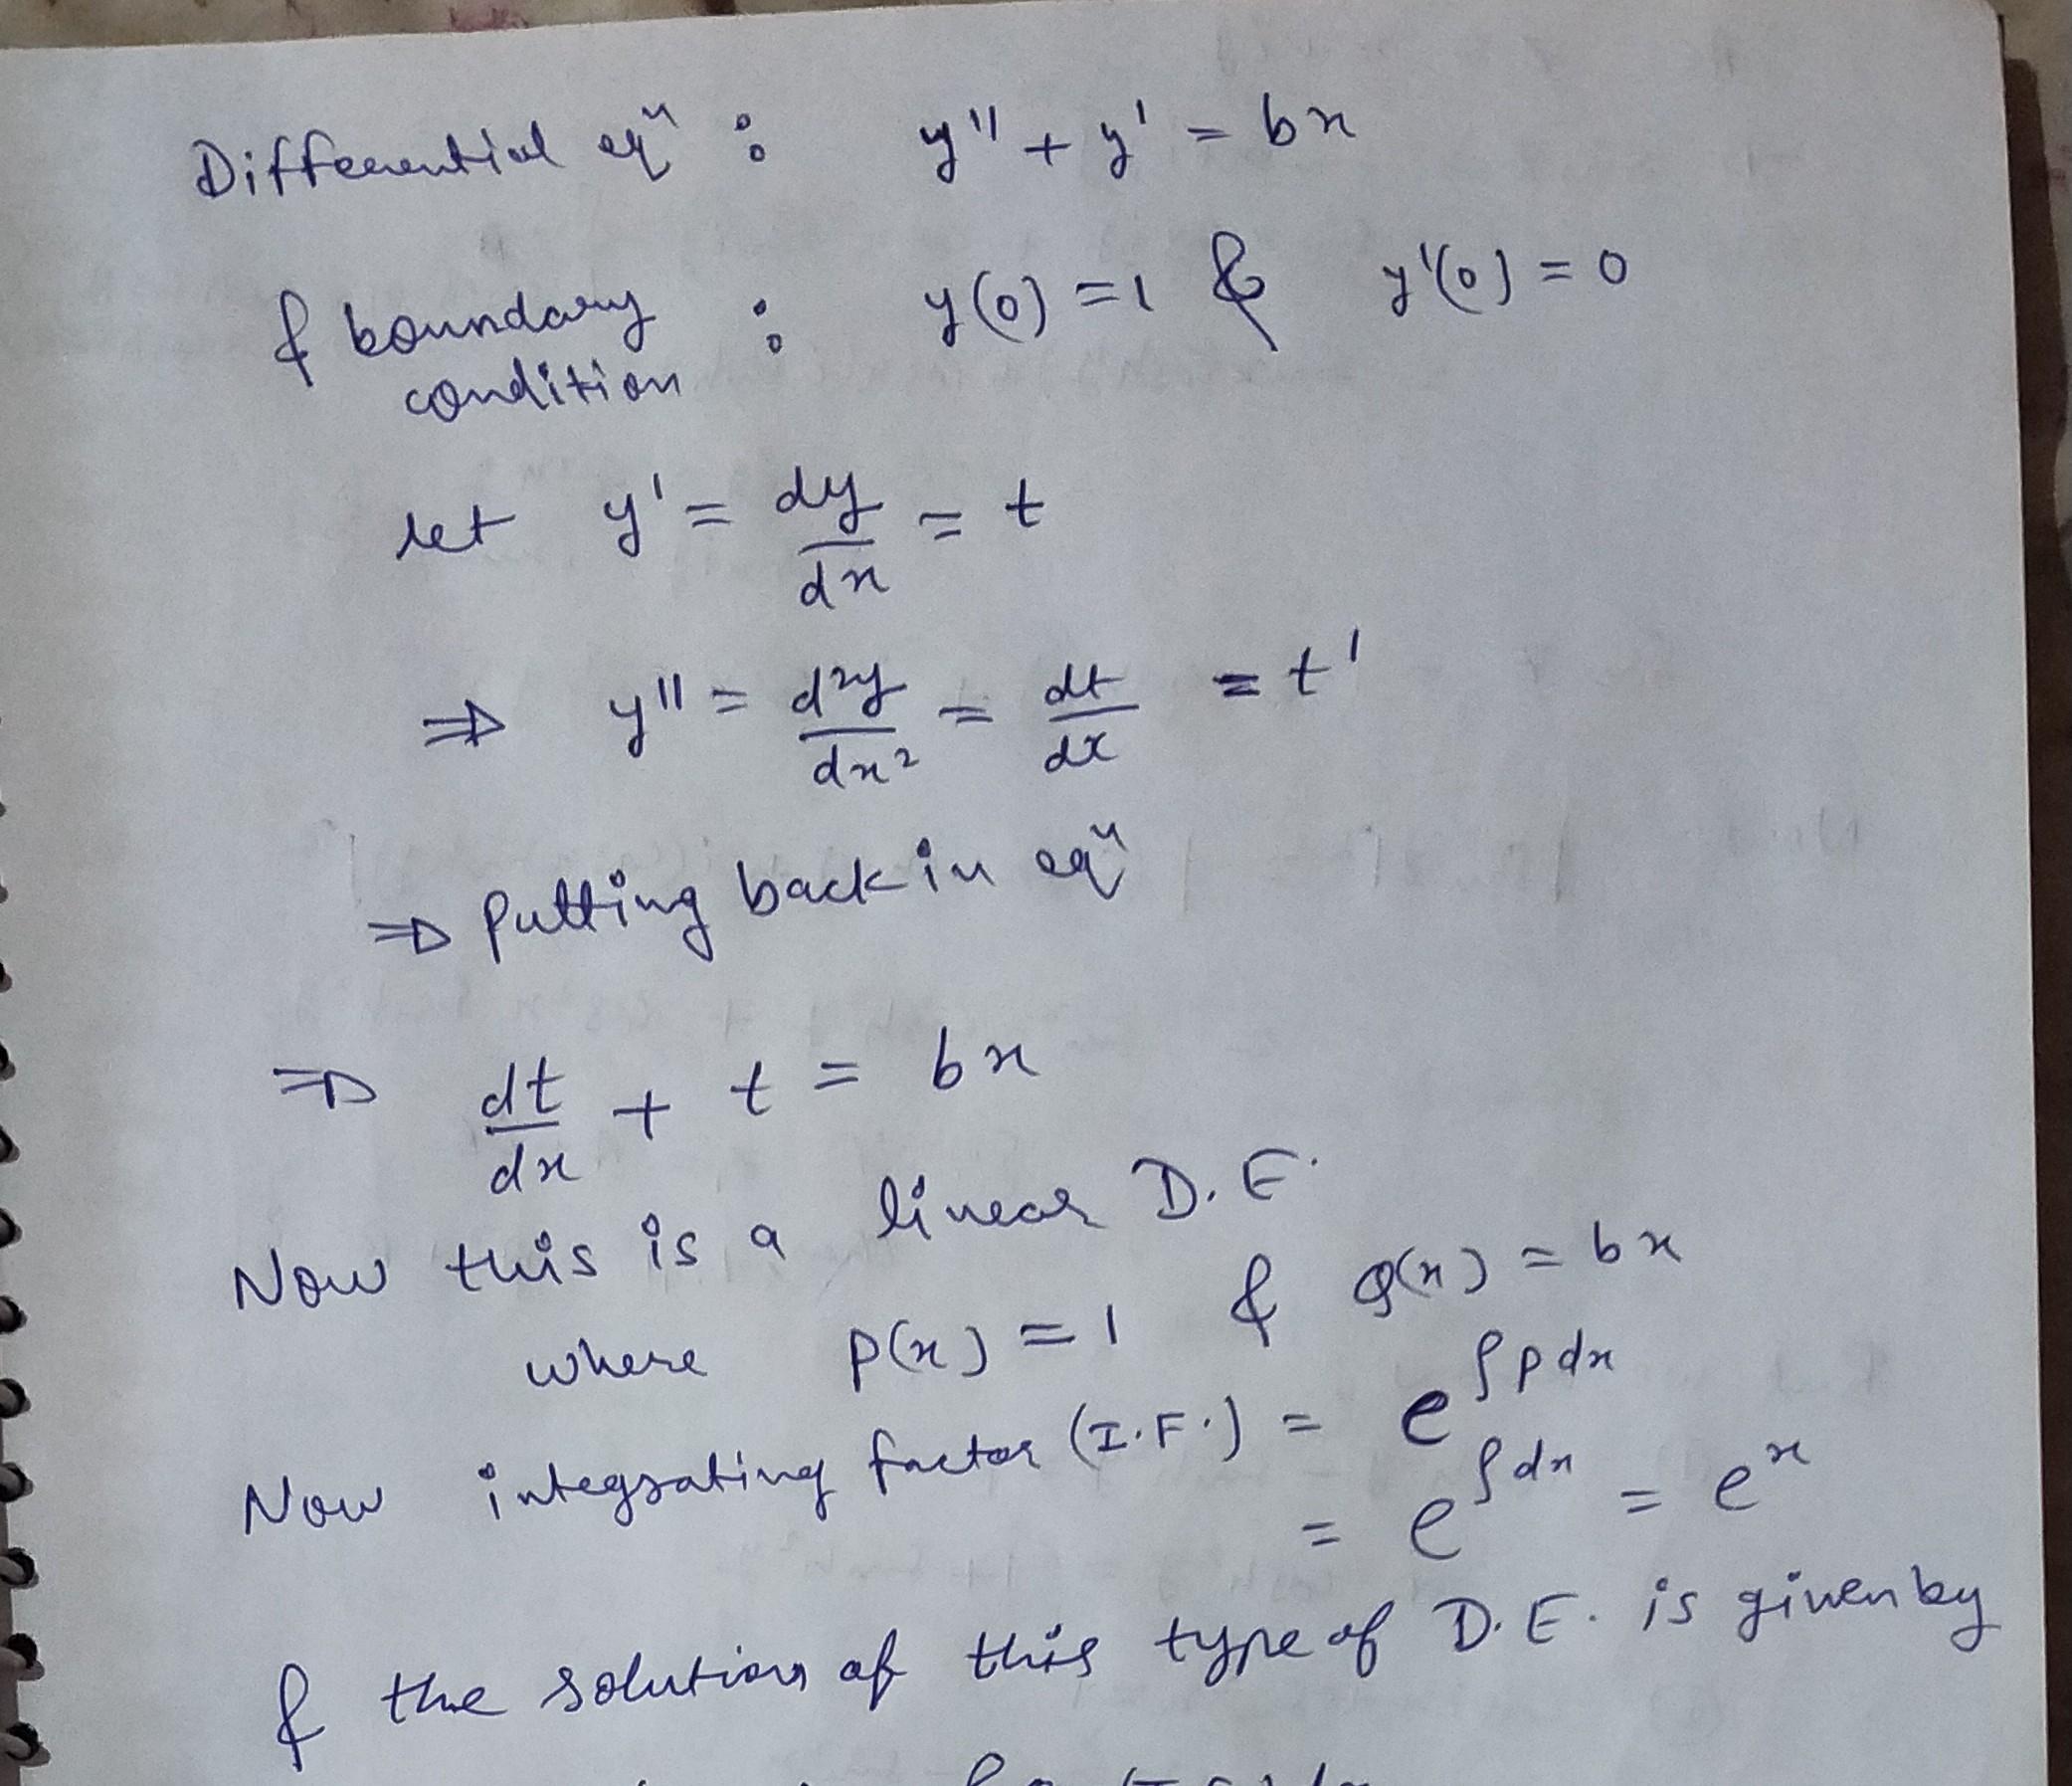 Differential eqⁿ : y'' + y' = bx
& boundary condition : y(0) = 1 & y'(0) = 0
let y' = dy/dx = t
⇒ y'' = d²y/dx² = dt/dx = t'
⇒ Putting back in eqⁿ
⇒ dt/dx + t = bx
Now this is a linear D.E.
where P(x) = 1 & Q(x) = bx
Now integrating factor (I.F.) = e^∫P dx
= e^∫dx = e^x
& the solution of this type of D.E. is given by